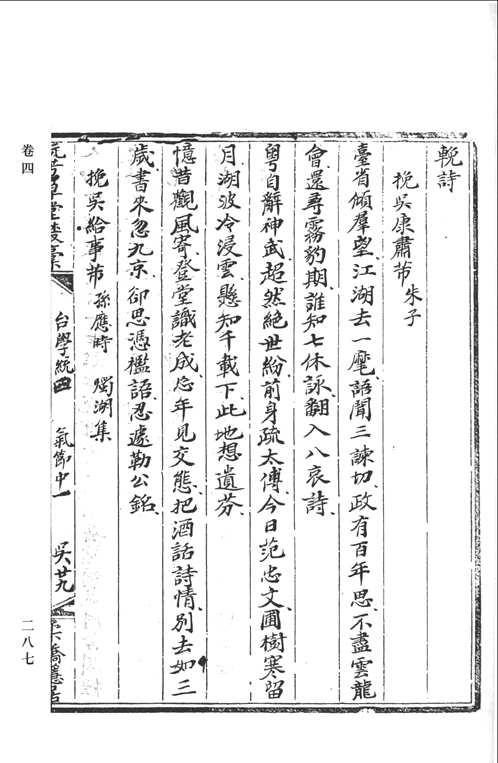 輓詩
挽吳康肅芾 朱子
臺省傾羣望江湖去一麾語聞三諫切政有百年思不盡雲龍
會還尋霧豹期誰知七休詠翻入八哀詩
粤自辭神武超然絶世紛前身疏太傅今日范忠文圃樹寒留
月湖波冷浸雲懸知千載下此地想遺芬
憶昔觀風寄登堂識老成忘年見交態把酒話詩情別去如三
歲書來忽九京卻思憑檻語忍遽勒公銘
挽吳給事芾 孫應時 燭湖集
台學統四 氣節中一 吳廿九
卷四
二八七